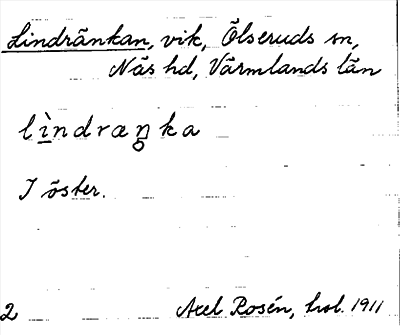 Lindränkan, vik, Ölseruds sn,
Näs hd, Värmlands län
lìndræŋka
I öster.
2
Axel Rosén, hsl. 1911